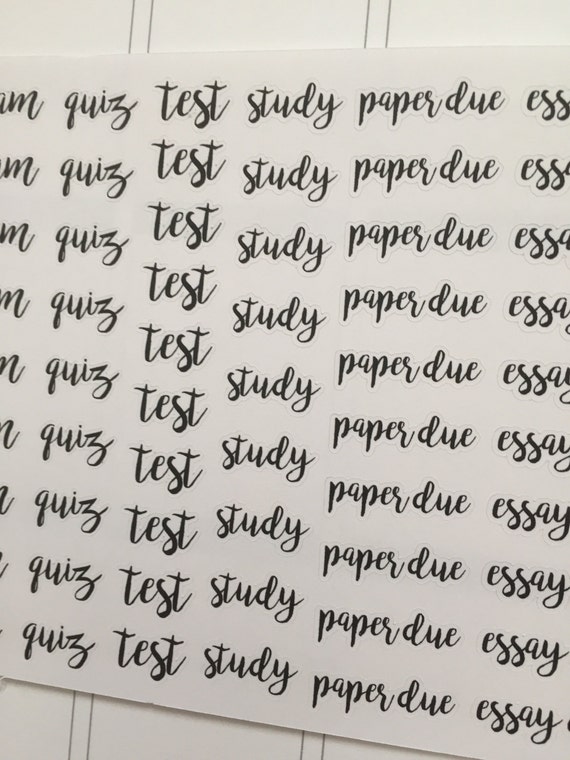 am quiz test study paper due ess
am quiz test study paper due essa
m quiz test study paper due essa
m quiz test study paper due essa
n quiz test study paper due essay
quiz test study paper due essay
quiz test study paper due essay
quiz test study paper due essay
test paper due essay
quiz test study paper due essay